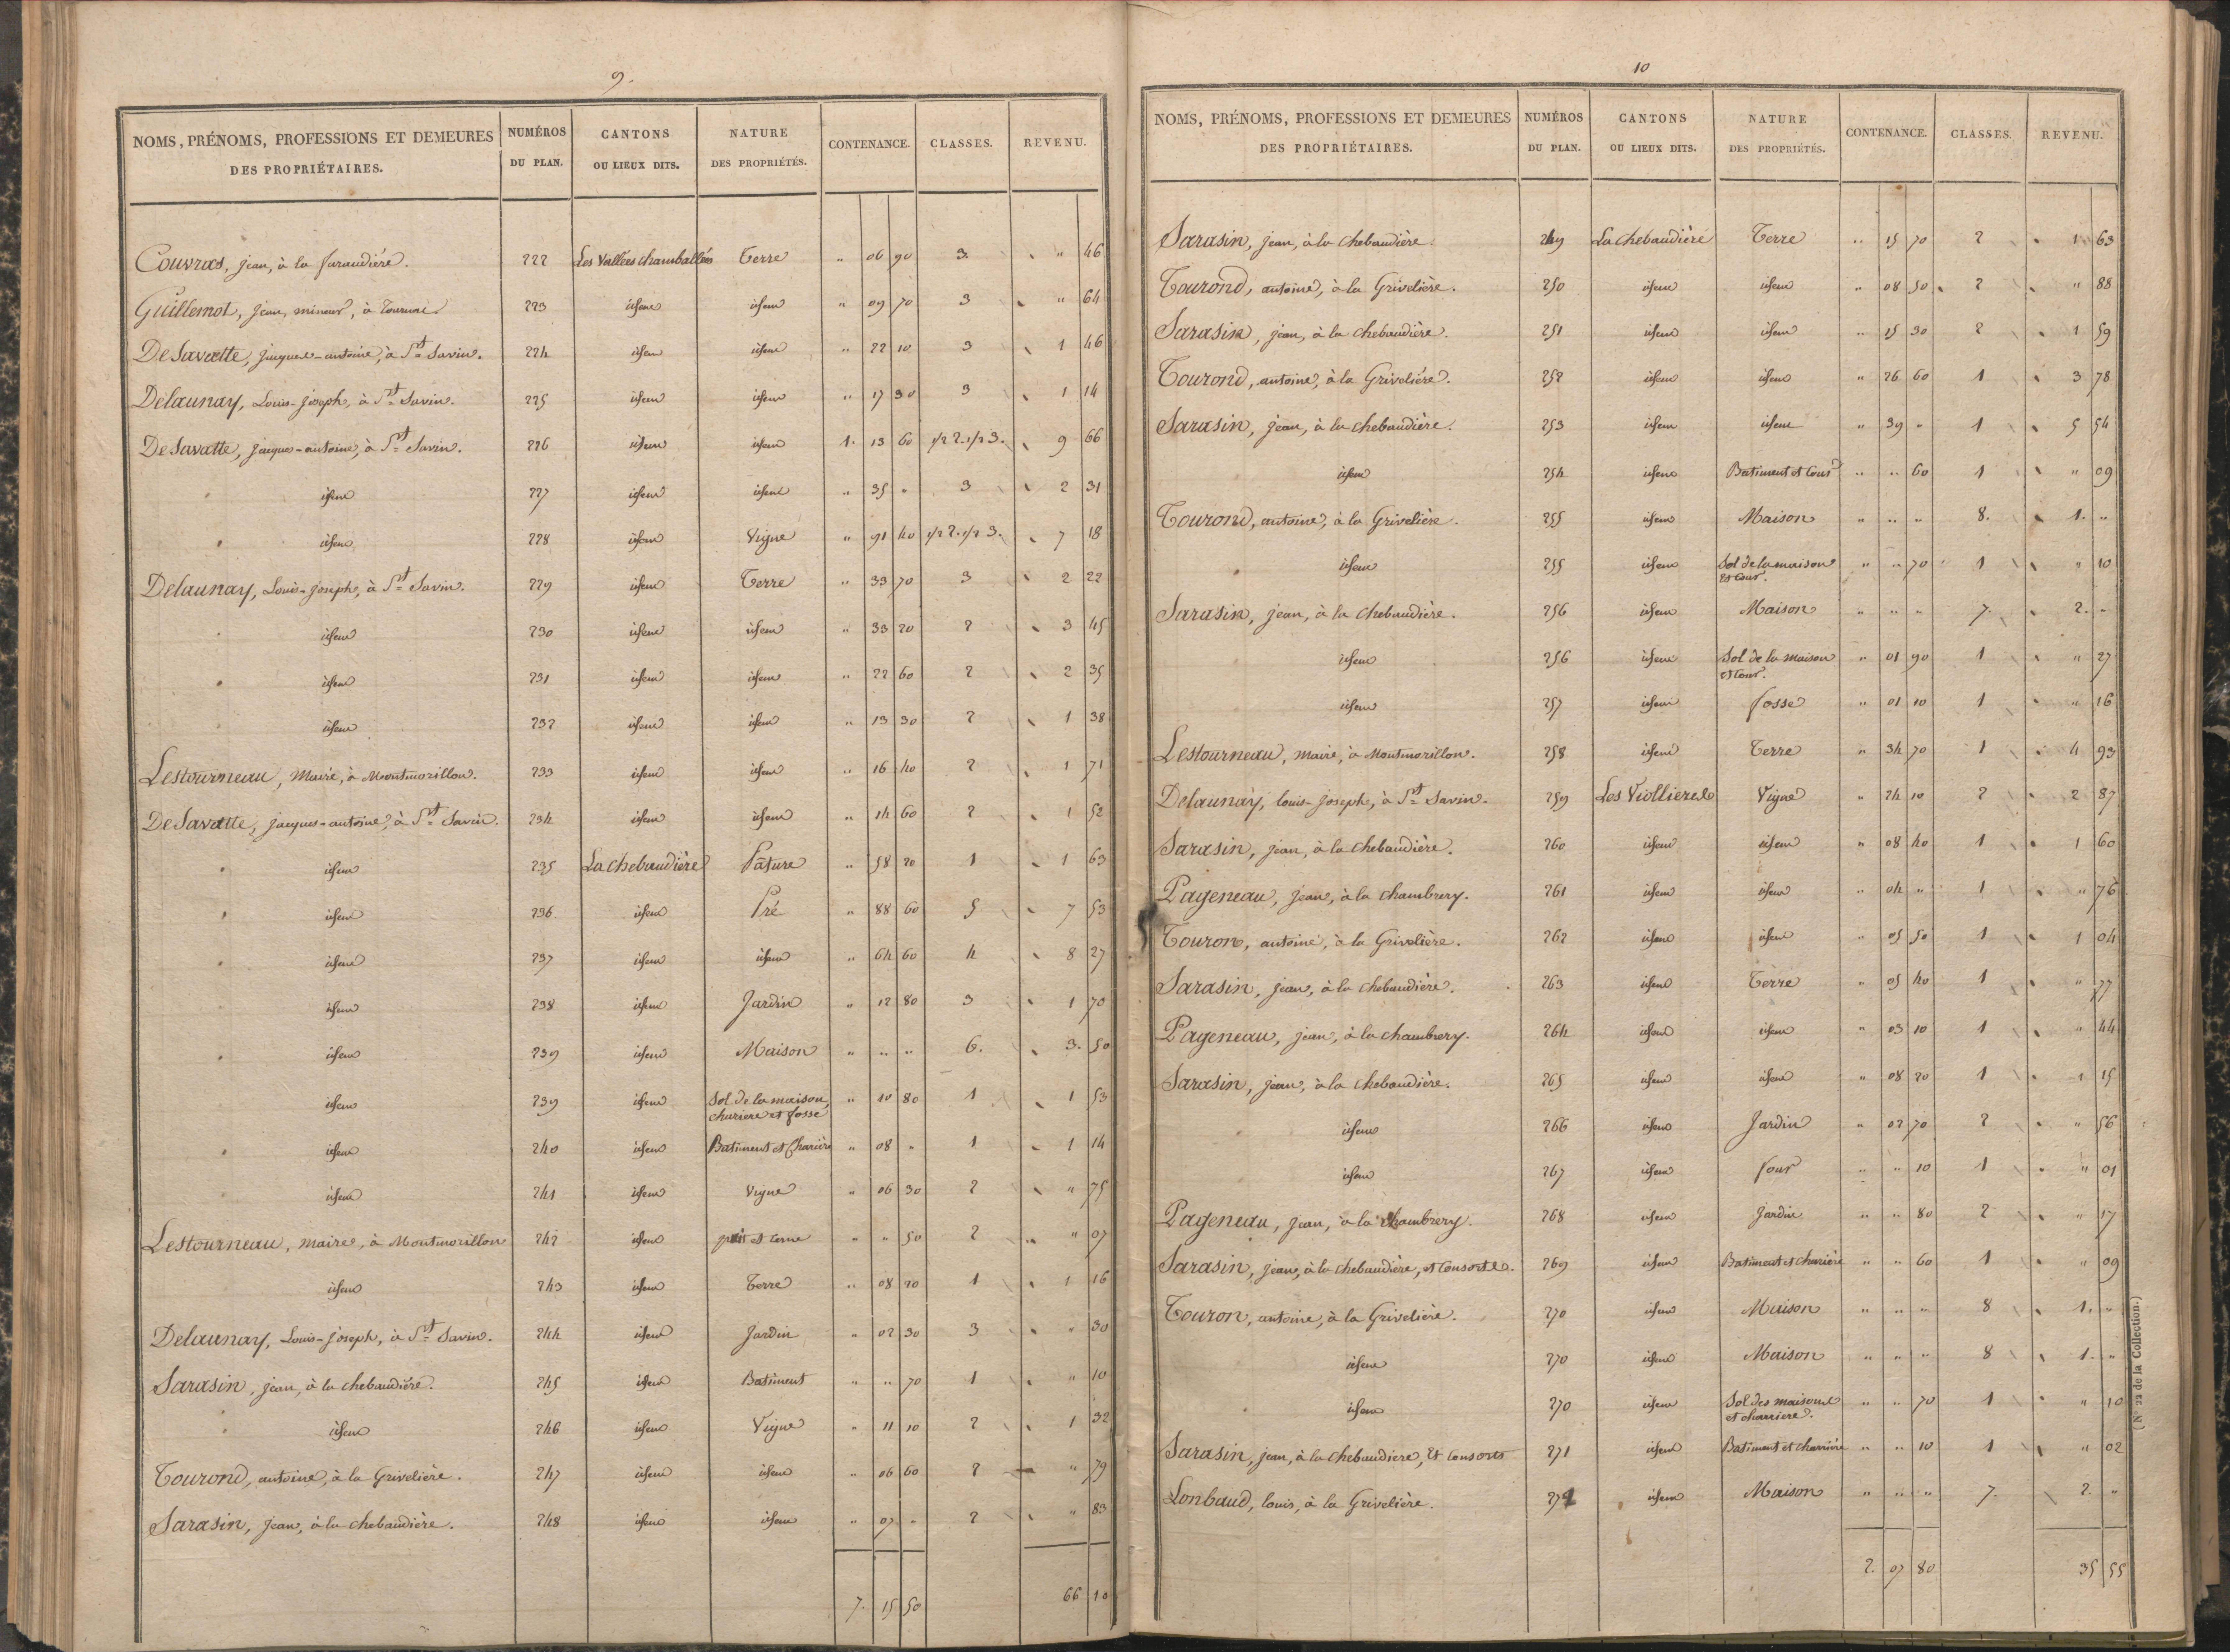 9.
NOMS, PRÉNOMS, PROFESSIONS ET DEMEURES DES PROPRIÉTAIRES. NUMÉROS DU PLAN. CANTONS OU LIEUX DITS. NATURE DES PROPRIÉTÉS. CONTENANCE. CLASSES. REVENU.
Couvras, jean, à la faraudière. 222 Les Vallées chamballées Terre " 06 90 3. " 46
Guillemot, jean, mineur, à Tournai 223 idem idem " 09 70 3 " 64
De Savatte, jacques-antoine, à St Savin. 224 idem idem " 22 10 3 1 46
Delaunay, Louis-joseph, à St Savin. 225 idem idem " 17 30 3 1 14
De Savatte, jacques-antoine, à St Savin. 226 idem idem 1. 13 60 1/2 2. 1/2 3. 9 66
idem 227 idem idem " 35 " 3 2 31
idem 228 idem Vigne " 91 40 1/2 2. 1/2 3. 7 18
Delaunay, Louis-joseph, à St Savin. 229 idem Terre " 33 70 3 2 22
idem 230 idem idem " 33 20 2 3 45
idem 231 idem idem " 22 60 2 2 35
idem 232 idem idem " 13 30 2 1 38
Lestourneau, Maire, à Montmorillon. 233 idem idem " 16 40 2 1 71
De Savatte, jacques-antoine, à St Savin. 234 idem idem " 14 60 2 1 52
idem 235 La chebaudière Pâture " 58 20 1 1 63
idem 236 idem Pré " 88 60 5 7 53
idem 237 idem idem " 64 60 4 8 27
idem 238 idem Jardin " 12 80 3 1 70
idem 239 idem Maison " " " 6. 3. 50
idem 239 idem Sol de la maison, chariere et fosse " 10 80 1 1 53
idem 240 idem Batiment et Charière " 08 " 1 1 14
idem 241 idem Vigne " 06 30 2 " 75
Lestourneau, maire, à Montmorillon 242 idem " " 50 2 " 07
idem 243 idem Terre " 08 20 1 1 16
Delaunay, Louis-joseph, à St Savin. 244 idem Jardin " 02 30 3 " 30
Sarasin, jean, à la chebaudière. 245 idem Batiment " " 70 1 " 10
idem 246 idem Vigne " 11 10 2 1 32
Tourond, antoine, à la Grivelière. 247 idem idem " 06 60 2 " 79
Sarasin, jean, à la chebaudière. 248 idem idem " 07 " 2 " 83
7. 15 50 66 10
10
NOMS, PRÉNOMS, PROFESSIONS ET DEMEURES DES PROPRIÉTAIRES. NUMÉROS DU PLAN. CANTONS OU LIEUX DITS. NATURE DES PROPRIÉTÉS. CONTENANCE. CLASSES. REVENU.
Sarasin, jean, à la chebaudière. 249 La chebaudière Terre " 15 70 2 1 63
Tourond, antoine, à la Grivelière. 250 idem idem " 08 50 2 " 88
Sarasin, jean, à la chebaudière. 251 idem idem " 15 30 2 1 59
Tourond, antoine, à la Grivelière. 252 idem idem " 26 60 1 3 78
Sarasin, jean, à la chebaudière. 253 idem idem " 39 " 1 5 54
idem 254 idem Batiment et Cour " " 60 1 " 09
Tourond, antoine, à la Grivelière. 255 idem Maison " " " 8. 1. "
idem 255 idem Sol de la maison et Cour. " " 70 1 " 10
Sarasin, jean, à la chebaudière. 256 idem Maison " " " 7. 2. "
idem 256 idem Sol de la maison et Cour. " 01 90 1 " 27
idem 257 idem fosse " 01 10 1 " 16
Lestourneau, maire, à Montmorillon. 258 idem Terre " 34 70 1 4 93
Delaunay, louis-joseph, à St Savin. 259 Les Viollieres Vigne " 24 10 2 2 87
Sarasin, jean, à la chebaudière. 260 idem idem " 08 40 1 1 60
Pageneau, jean, à la chambrery. 261 idem idem " 04 " 1 " 76
Touron, antoine, à la Grivelière. 262 idem idem " 05 50 1 1 04
Sarasin, jean, à la chebaudière. 263 idem Terre " 05 40 1 " 77
Pageneau, jean, à la chambrery. 264 idem idem " 03 10 1 " 44
Sarasin, jean, à la chebaudière. 265 idem idem " 08 20 1 1 15
idem 266 idem Jardin " 02 70 2 " 56
idem 267 idem four " " 10 1 " 01
Pageneau, jean, à la chambrery. 268 idem Jardin " " 80 2 " 17
Sarasin, jean, à la chebaudière, et Consorts. 269 idem Batiment et charière " " 60 1 " 09
Touron, antoine, à la Grivelière. 270 idem Maison " " " 8 1. "
idem 270 idem Maison " " " 8 1. "
idem 270 idem Sol des maisons et charriere. " " 70 1 " 10
Sarasin, jean, à la chebaudiere, et Consorts 271 idem Batiment et charrière " " 10 1 " 02
Lonbaud, louis, à la Grivelière. 272 idem Maison " " " 7. 2. "
2. 07 80 35 55
(N° 22 de la Collection.)